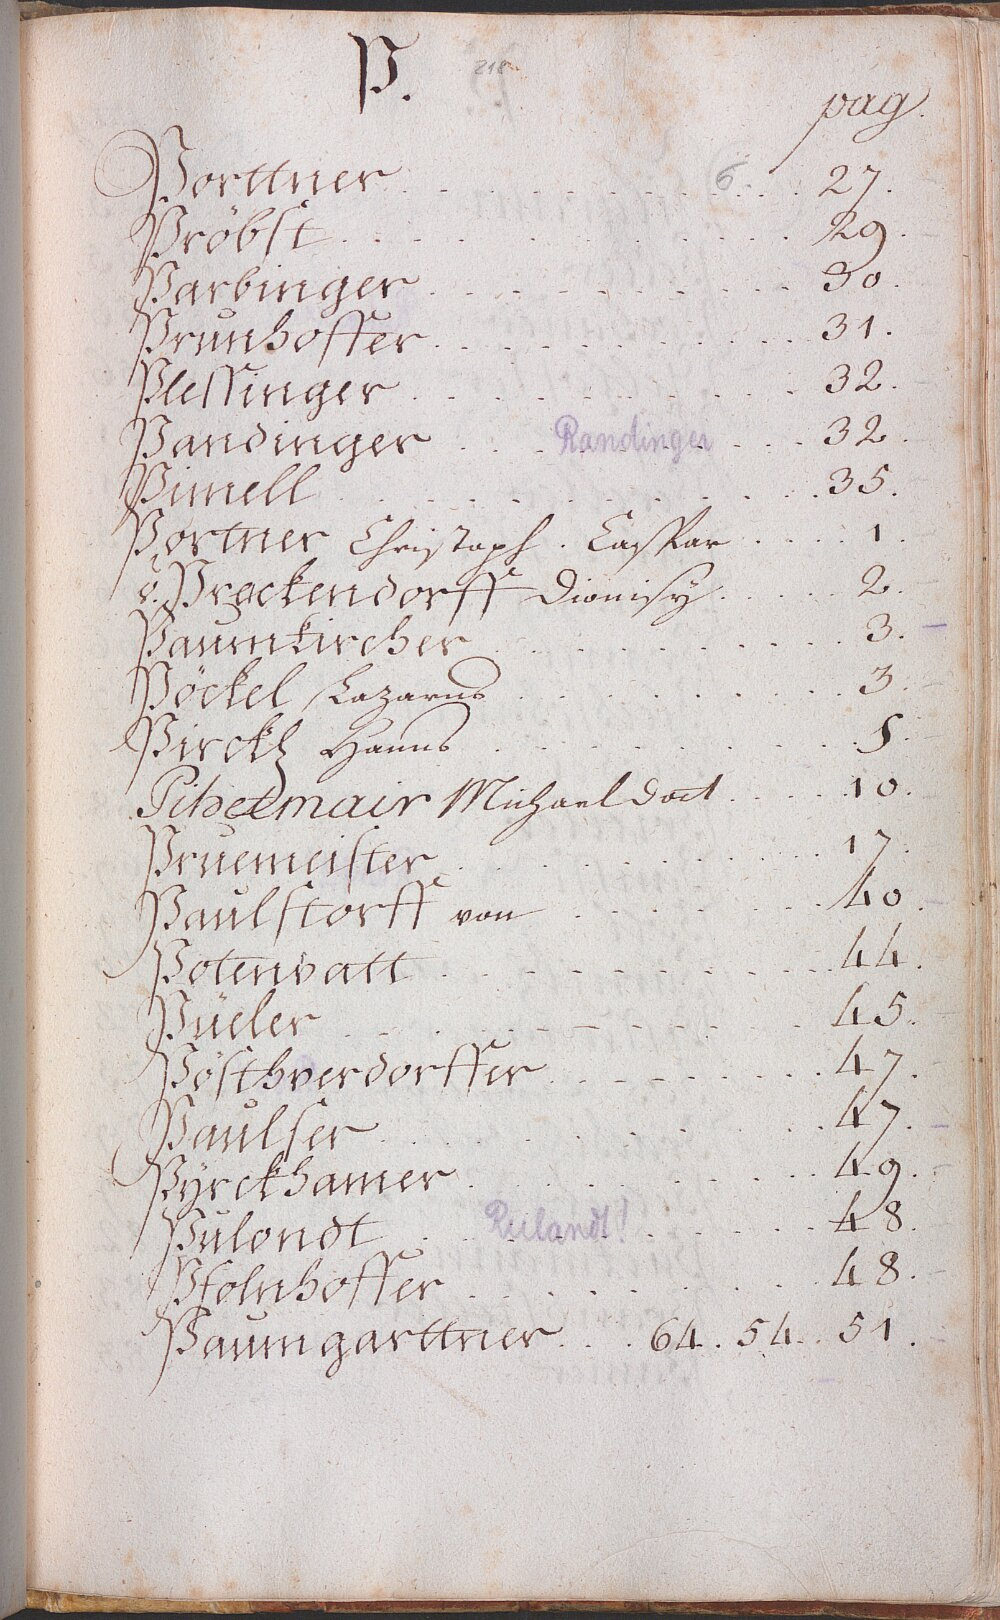 P. 218
pag.
Porttner . . . . . . . . . . 6 . . . 27.
Pröbst . . . . . . . . . . 29.
Parbinger . . . . . . . . . . 30.
Prunhoffer . . . . . . . . . . 31.
Plessinger . . . . . . . . . . 32.
Pandinger . . . Randinger . . . 32.
Pimell . . . . . . . . . . 35.
Portner Christoph. Caspar . . . . 1.
v. Prackendorff Dionisy . . . . . 2.
Paumkircher . . . . . . . . . . 3.
Pöckel Lazarus . . . . . . . . . 3.
Pirckh Hanns . . . . . . . . .
Michael doct . . . . 10.
Pruemeister . . . . . . . . . . 17.
Paulstorff von . . . . . . . . 40.
Potenvatt . . . . . . . . . . 44.
Püeler . . . . . . . . . . 45.
Pösthverdorffer . . . . . . . 47.
Paulser . . . . . . . . . . 47.
Pyrckhamer . . . . . . . . . 49.
Pulondt . . Rulandt! . . . . 48.
Pfolnhoffer . . . . . . . . . 48.
Paumgarttner . . . 64. 54. 51.